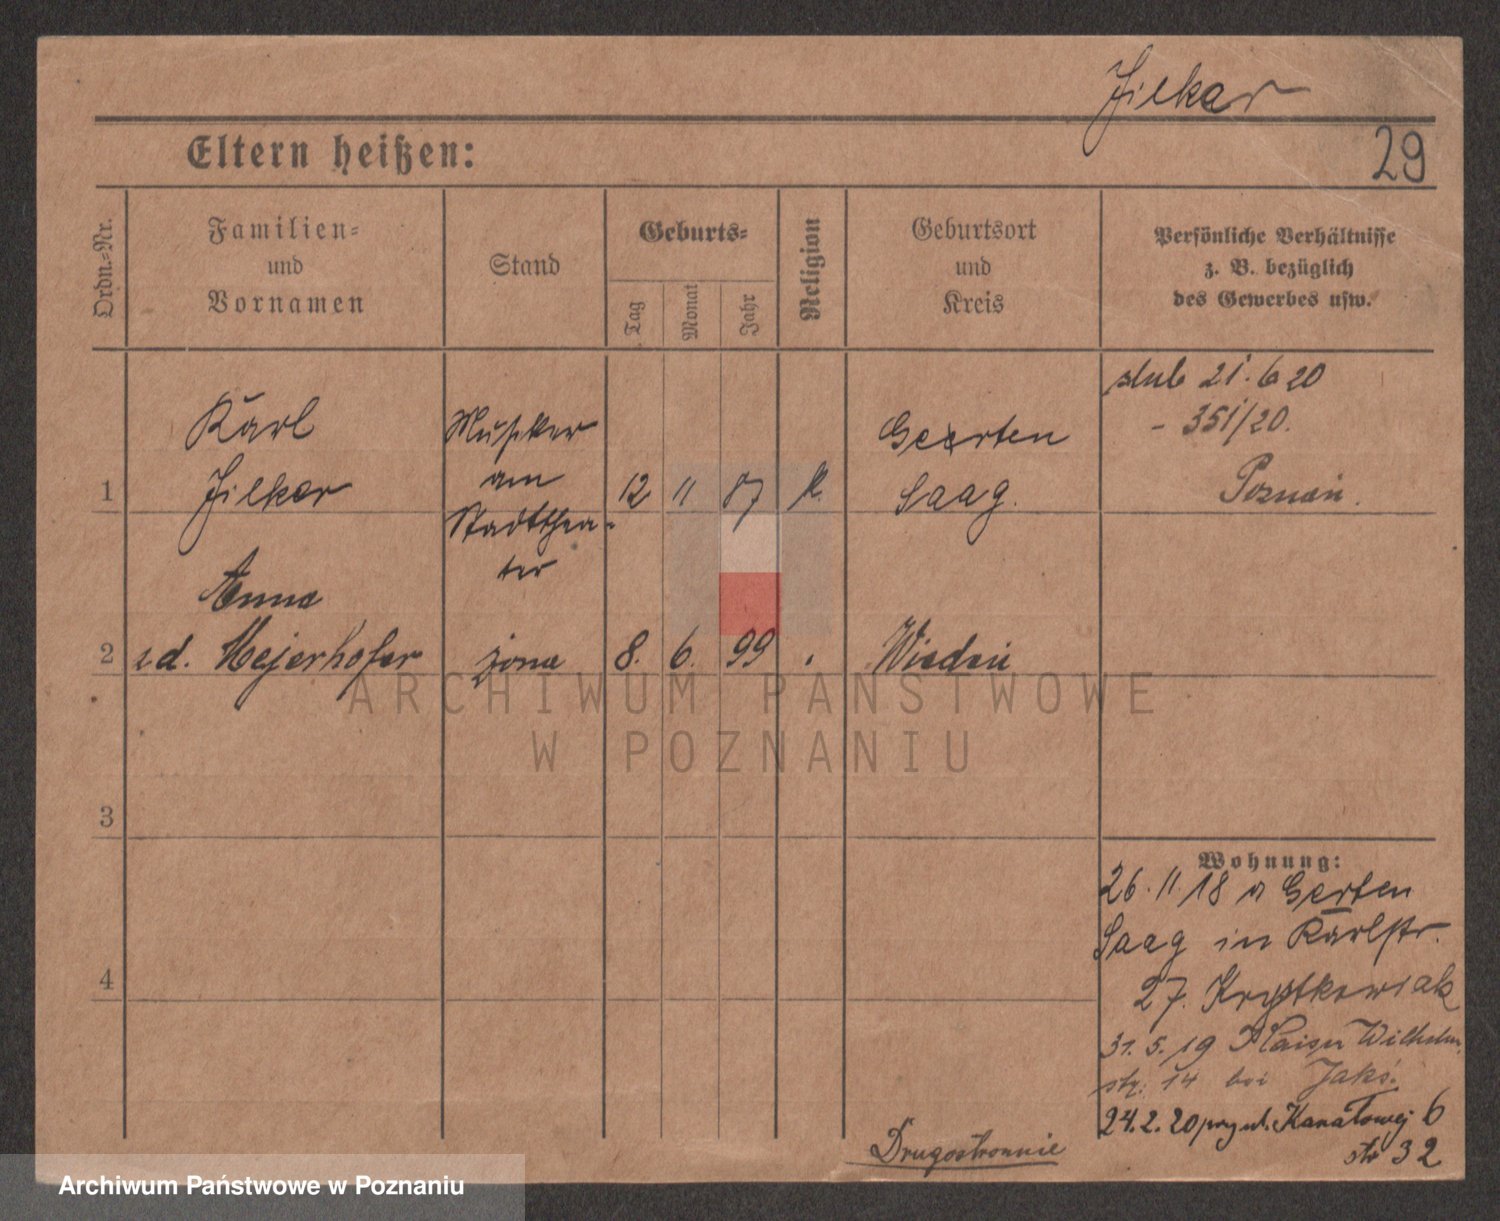 Jilker
29
Eltern heißen:
Ordn.-Nr.
Familien-
und
Vornamen
Stand
Geburts-
Tag
Monat
Jahr
Religion
Geburtsort
und
Kreis
Persönliche Verhältnisse
z. B. bezüglich
des Gewerbes usw.
1
Karl
Jilker
Musiker
am
Stadtthea-
ter
12 11 87 k.
Gersten
Saag.
ślub 21.6 20
- 351/20.
Poznań.
2
Anna
z d. Mejerhofer
żona
8. 6. 99
Wiedeń
3
4
Wohnung:
26.11.18 a Gersten
Saag in Karlstr.
27. Krystkowiak
31.5.19 Kaiser Wilhelm
str. 14 bei Jaks.
24.2.20 przy ul. Kanałowej 6
str 32
Drugostronnie
ARCHIWUM PAŃSTWOWE
W POZNANIU
Archiwum Państwowe w Poznaniu